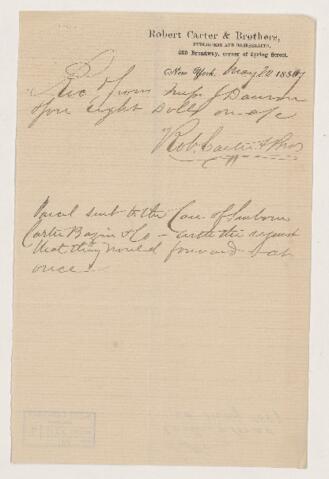 Robert Carter & Brothers,
PUBLISHERS AND BOOKSELLERS,
530 Broadway, corner of Spring Street.
New York, May 20 185
Rec'd from J Dawson
eight Dolls on a/c
Rob Carter & Bros
Parcel sent to the Care of Sanborn
Carter Bazin & Co - with the request
that they would forward at
once